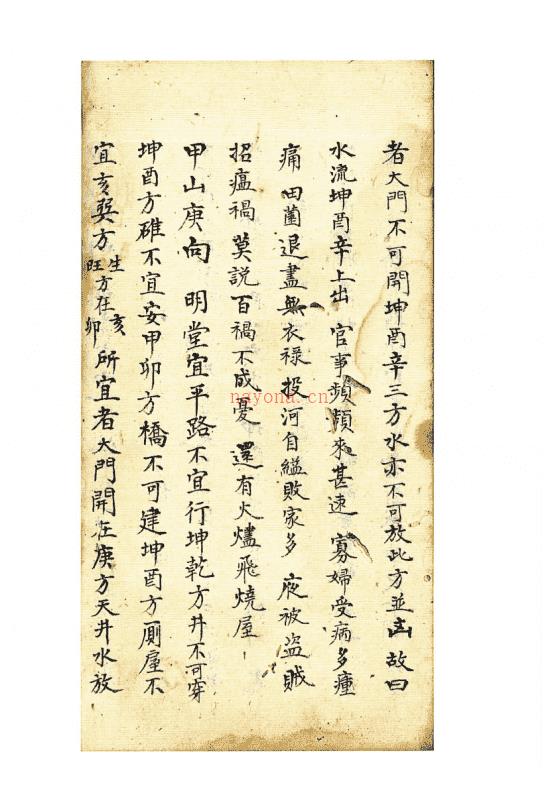 者大門不可開坤酉辛三方水亦不可放此方並凶故曰
水流坤酉辛上出 官事頻頻來甚速 寡婦受病多瘇
痛 田菌退盡無衣祿 投河自縊敗家多 被盜賊
招瘟禍 莫說百禍不成憂 還有火燼飛燒屋
甲山庚向 明堂宜平路不宜行坤乾方井不可穿
坤酉方碓不宜安甲卯方橋不可建坤酉方厠屋不
宜亥巽方生旺方在亥卯所宜者大門開在庚方天井水放
nayona.cn